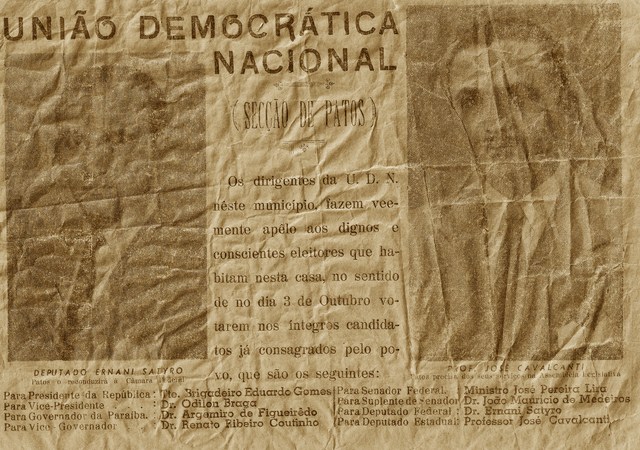 UNIÃO DEMOCRÁTICA
NACIONAL
(SECÇÃO DE PATOS)
Os dirigentes da U. D. N.
néste municipio, fazem vee-
mente apêlo aos dignos e
conscientes eleitores que ha-
bitam nesta casa, no sentido
de no dia 3 de Outubro vo-
tarem nos íntegros candida-
tos já consagrados pelo po-
vo, que são os seguintes:
DEPUTADO ERNANI SATYRO
Patos o reconduzirá à Câmara Federal
PROF. JOSÉ CAVALCANTI
Patos precisa dos seus na Assembléia Legislativa
Para Presidente da República : Tte. Brigadeiro Eduardo Gomes
Para Vice-Presidente : Dr. Odilon Braga
Para Governador da Paraiba. : Dr. Argemiro de Figueirêdo
Para Vice-Governador : Dr. Renato Ribeiro Coutinho
Para Senador Federal. : Ministro José Pereira Lira
Para Suplente de Senador : Dr. João Mauricio de Medeiros
Para Deputado Federal : Dr. Ernani Satyro
Para Deputado Estadual: Professor José Cavalcanti